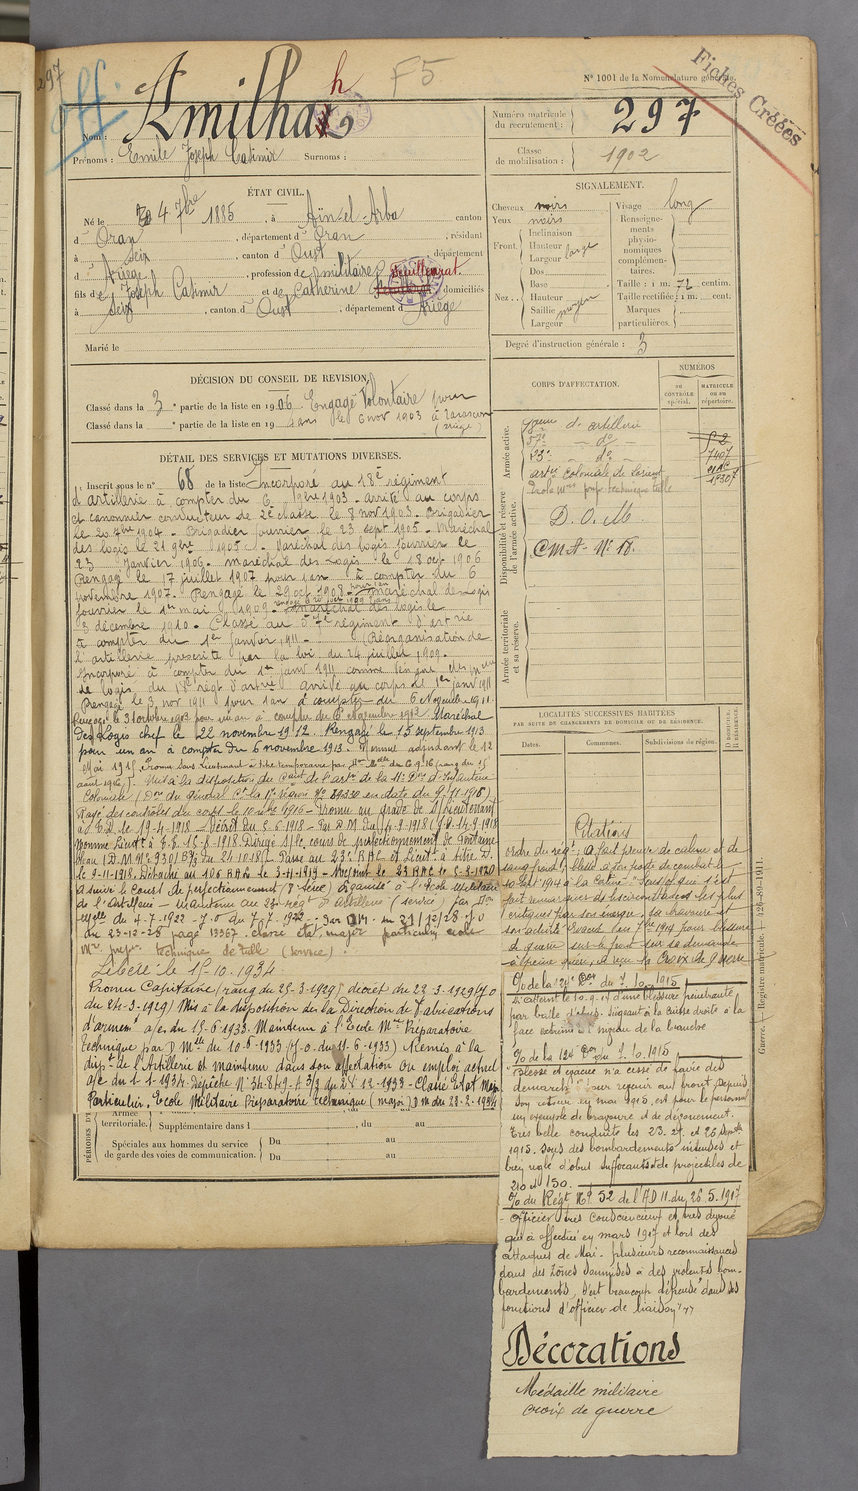 297
off.
F5
N° 1001 de la Nomenclature générale.
Fiches Créées
Nom : Amilhaz h
Prénoms : Emile Joseph Casimir Surnoms :
Numéro matricule du recrutement : 297
Classe de mobilisation : 1902
ÉTAT CIVIL.
Né le 4 7bre 1885, à Aïn-el-Arba canton
d'Oran, département d'Oran, résidant
à Seix, canton d'Oust, département
d'Ariège, profession de militaire
fils de Joseph Casimir et de Catherine Feuillerat. domiciliés
à Seix, canton d'Oust, département d Ariège
Marié le
SIGNALEMENT.
Cheveux noirs
Yeux noirs
Front. Inclinaison
Hauteur
Largeur large
Nez.. Dos
Base
Hauteur
Saillie moyen
Largeur
Visage long
Renseignements physionomiques complémentaires.
Taille : 1 m. 72 centim.
Taille rectifiée : 1 m. cent.
Marques particulières.
Degré d'instruction générale : 3
DÉCISION DU CONSEIL DE REVISION
Classé dans la 3e partie de la liste en 1906 Engagé Volontaire pour
Classé dans la e partie de la liste en 19 ans le 6 nov 1903 à
CORPS D'AFFECTATION.
NUMÉROS
AU CONTRÔLE spécial.
MATRICULE ou au répertoire.
Armée active.
d'artillerie
57e do
23e do
1407
artie Coloniale de Lorient
Disponibilité et réserve de l'armée active.
D. O. M
CMA - N° 18.
Armée territoriale et sa réserve.
DÉTAIL DES SERVICES ET MUTATIONS DIVERSES.
Inscrit sous le n° 68 de la liste Incorporé au 18e régiment
d'artillerie à compter du 6 9bre 1903 - arrivé au corps
et canonnier conducteur de 2e classe le 8 nov 1903. Brigadier
le 20 7bre 1904 - Brigadier fourrier le 23 sept 1905 - Maréchal
des logis le 21 9bre 1905. Maréchal des logis fourrier le
23 Janvier 1906. maréchal des Logis le 18 oct 1906
Rengagé le 17 juillet 1907 pour 1 an à compter du 6
novembre 1907. Rengagé le 29 oct 1908 pour 1 an maréchal des logis
fourrier le 1er mai 1909. maréchal des logis le
3 décembre 1910. Classé au régiment d'artie
à compter du 1er janvier 1911. (Réorganisation de
l'artillerie prescrite par la loi du 24 juillet 1909.
Incorporé à compter du 1er janv 1911 comme
de logis, du 18e régt d'artie arrivé au corps le 1er janv 1911
Rengagé le 3 nov 1911 pour 1 an à compter du 6 Novembre 1911.
Rengagé le 31 octobre pour un an à compter du 6 Novembre Maréchal
des Logis chef le 22 novembre 1912. Rengagé le 15 septembre 1913
pour un an à compter du 6 novembre 1913. Nommé adjudant le 12
Mai 1915 Promu Sous Lieutenant à titre temporaire par
Mis à la disposition du Comt de l'artie de la 11e Don d'Infanterie
Coloniale
Rayé des contrôles du corps le 10 1916 - Promu au grade de S/Lieutenant
à T.D. le 19-4-1918 - Décret du 5-6-1918
nommé Lieutt à T.T. 15-8-1918. Dirigé s/le cours de perfectionnement de Fontaine
bleau du 24-10-1918 - Passe au 23e RAC et Lieutt à titre D.
le 9-11-1918. Détaché au 106 RALH le 3-4-1919 - le 23 RAC le 5-3-1920
a suivi le Court de perfectionnement (8e Série) Organisé à l'école Militaire
de l'Artillerie - Maintenu au 23e régt d'Artillerie (service) par Don
Mlle du 4-7-1922 - J.O du 7-7-1922 - 21/12/28 J.O
du 23-12-28 page 13367. classé état major particulier école
Mre prépre technique de Tulle (service).
Libéré le 15-10-1934
Promu Capitaine (rang du 25-3-1929) décret du 23-3-1929 (JO
du 24-3-1929) Mis à la disposition de la Direction de Fabrications
d'armemt a/c du 15-6-1933. Maintenu à l'Ecole Mre Préparatoire
technique par D Mlle du 10-6-1933 (J.O. du 11-6-1933) Remis à la
dispn de l'Artillerie et maintenu dans son affectation ou emploi actuel
a/c du 1-1-1934. Dépêche N° 34.849 - A 3/3 du 28-12-1933 - Classé Etat Major
Particulier. Ecole Militaire Préparatoire technique (major) D M du 23-2-1934
LOCALITÉS SUCCESSIVES HABITÉES
PAR SUITE DE CHANGEMENTS DE DOMICILE OU DE RÉSIDENCE.
Dates.
Communes.
Subdivisions de région.
D DOMICILE. R RÉSIDENCE.
Citations
ordre du régt, a fait preuve de calme et de
sang froid, blessé à son poste de combat le
10 Sept 1914 à la Certine. Sous/off qui s'est
fait remarquer dans les circonstances les plus
critiques par son énergie, sa bravoure et
son activité. Evacué en 7bre 1914 pour blessure
de guerre sur le front sur sa demande
à peine guéri, a reçu la Croix de Guerre
O/ de la 124e Don du 7.10.1915
atteint le 10.9.14 d'une blessure pénétrante
par balle d'obus siégeant à la cuisse droite à la
face externe
O/ de la 124e Don du 7.10.1915
"Blessé et évacué n'a cessé de faire des
démarches pour revenir au front. Depuis
son retour en mai 1915, est pour le personnel
un exemple de bravoure et de dévouement.
Très belle conduite les 23. 24 et 26 Septembre
1915, sous des bombardements intenses et
bien réglé d'obus suffocants et de projectiles de
210 et 150.
O/ du Régt N° 52 de l'A D 11 du 26.5.1917
- Officier très consciencieux et très dévoué
qui a effectué en mars 1917 et lors des
attaques de Mai - plusieurs reconnaissances
dans des zônes soumises à des violents bom-
bardements, s'est beaucoup dépensé dans ses
fonctions d'officier de liaison"
Décorations
Médaille militaire
croix de guerre
PÉRIODES D'
Armée territoriale.
Supplémentaire dans l , du au
Spéciales aux hommes du service de garde des voies de communication.
Du au
Du au
Guerre. — Registre matricule. — 426-89-1911.